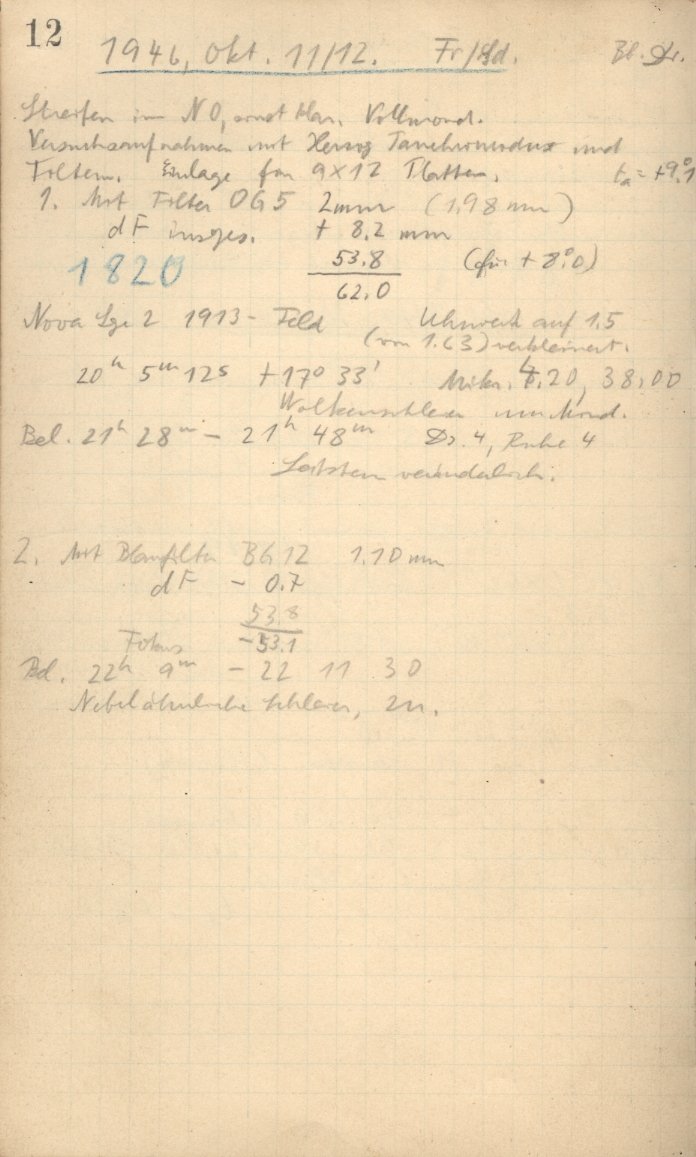 12
1946, Okt. 11/12. Fr/Sd. Bl. Dr.
Streifen im NO, sonst klar. Vollmond.
Versuchsaufnahmen mit Herzog und
Filtern. Einlage für 9x12 Platten. ta = +9°.1
1. Mit Filter OG5 2mm (1,98 mm)
dF insges. + 8.2 mm
1820 53.8 (für + 8°.0)
62.0
Nova Sge 2 1913 - Feld Uhrwerk auf 1.5
(von 1.63) verkleinert.
20h 5m 12s +17° 33' Mikr. 4.20, 38.00
Wolkenschleier um Mond.
Bel. 21h 28m - 21h 48m Dr. 4, Ruhe 4
Leitstern veränderlich.
2. Mit Blaufilter BG12 1.10 mm
dF - 0.7
53.8
Fokus - 53.1
Bel. 22h 9m - 22 11 30
Nebelähnliche Schleier, zu.